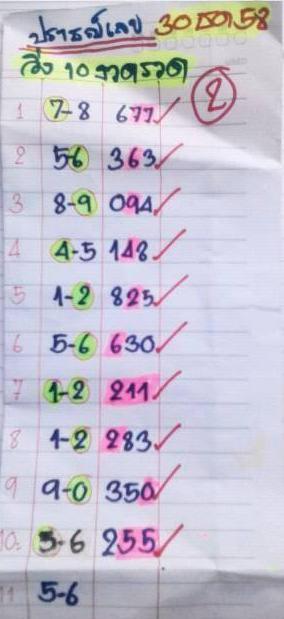 ปรารถนาเลข 30 ธค 58
วิ่ง 10 งวดรวด
2
1 7-8 677
2 5-6 363
3 8-9 094
4 4-5 148
5 1-2 825
6 5-6 630
7 1-2 211
8 1-2 283
9 9-0 350
10. 5-6 255
11 5-6